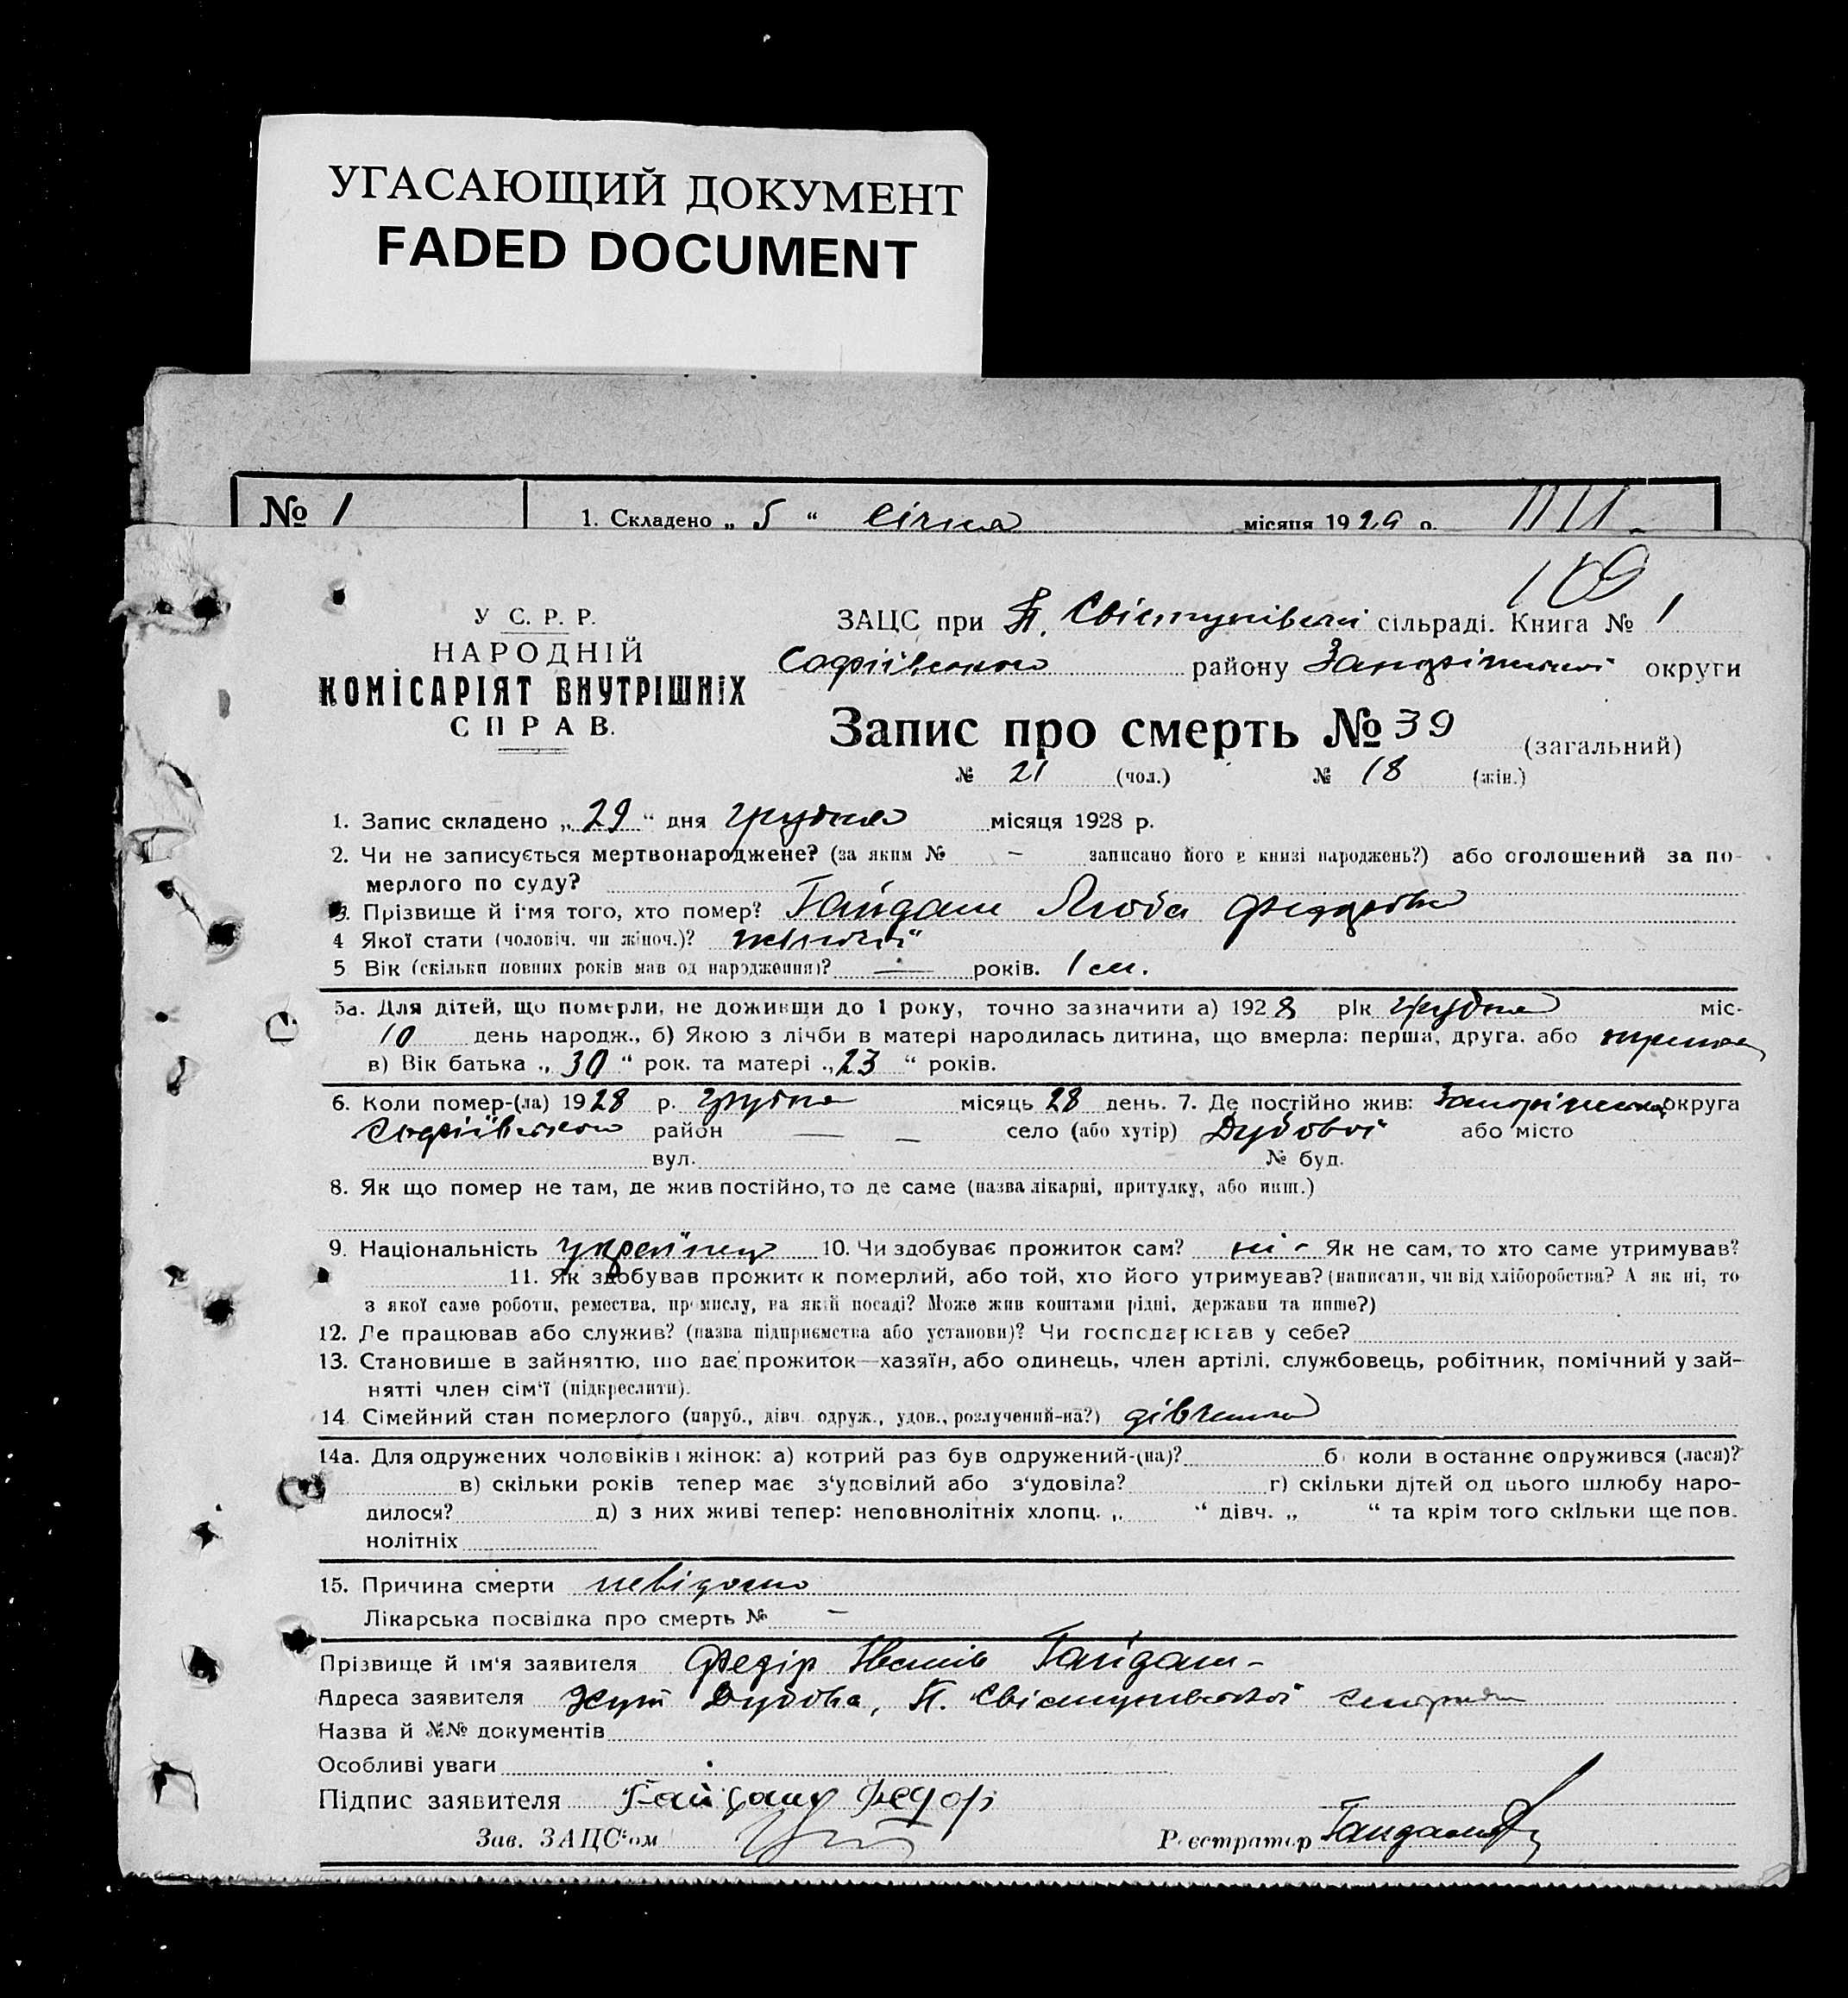 УГАСАЮЩИЙ ДОКУМЕНТ
FADED DOCUMENT
№ 1
1. Складено „ 5 “ січня місяця 1929 р.
109
У С. Р. Р.
НАРОДНІЙ
КОМІСАРІЯТ ВНУТРІШНІХ
СПРАВ.
ЗАЦС при П. Свістунівській сільраді. Книга № 1
Софіївського району Запоріжської округи
Запис про смерть № 39 (загальний)
№ 21 (чол.) № 18 (жін.)
1. Запис складено „ 29 “ дня грудня місяця 1928 р.
2. Чи не записується мертвонароджене? (за яким № – записано його в книзі народжень?) або оголошений за по-
мерлого по суду?
3. Прізвище й ім'я того, хто помер? Гайдаш Люба Федорівна
4 Якої стати (чоловіч. чи жіноч.)? жіночої
5 Вік (скільки повних років мав од народження)? — років. 1 см.
5а. Для дітей, що померли, не доживши до 1 року, точно зазначити а) 1928 рік грудня міс-
10 день народж., б) Якою з лічби в матері народилась дитина, що вмерла: перша, друга. або
в) Вік батька „ 30 “ рок. та матері „ 23 “ років.
6. Коли помер-(ла) 1928 р. грудня місяць 28 день. 7. Де постійно жив: Запоріжська округа
Софіївського район — – село (або хутір) Дубової або місто
вул. № буд.
8. Як що помер не там, де жив постійно, то де саме (назва лікарні, притулку, або инш.)
9. Національність 10. Чи здобуває прожиток сам? ні - Як не сам, то хто саме утримував?
11. Як здобував прожиток померлий, або той, хто його утримував? (написати, чи від хліборобства? А як ні, то
з якої саме роботи, ремества, промислу, на якій посаді? Може жив коштами рідні, держави та инше?)
12. Де працював або служив? (назва підприємства або установи)? Чи господарював у себе?
13. Становище в зайняттю, що дає прожиток—хазяїн, або одинець, член артілі, службовець, робітник, помічний у зай-
нятті член сім'ї (підкреслити).
14 Сімейний стан померлого (паруб., дівч. одруж., удов., розлучений-на?) дівчина
14а. Для одружених чоловіків і жінок: а) котрий раз був одружений-(на)? б) коли в останнє одружився (лася)?
в) скільки років тепер має з'удовілий або з'удовіла? г) скільки дітей од цього шлюбу наро-
дилося? д) з них живі тепер: неповнолітніх хлопц. „ “ дівч. „ “ та крім того скільки ще пов.
нолітніх
15. Причина смерти невідомо
Лікарська посвідка про смерть № –
Прізвище й ім'я заявителя Федір Іванів Гайдаш -
Адреса заявителя Хут Дубова, П. Свістунівської
Назва й №№ документів
Особливі уваги
Підпис заявителя Гайдаш Федор
Зав. ЗАЦС'ом
Реєстратор